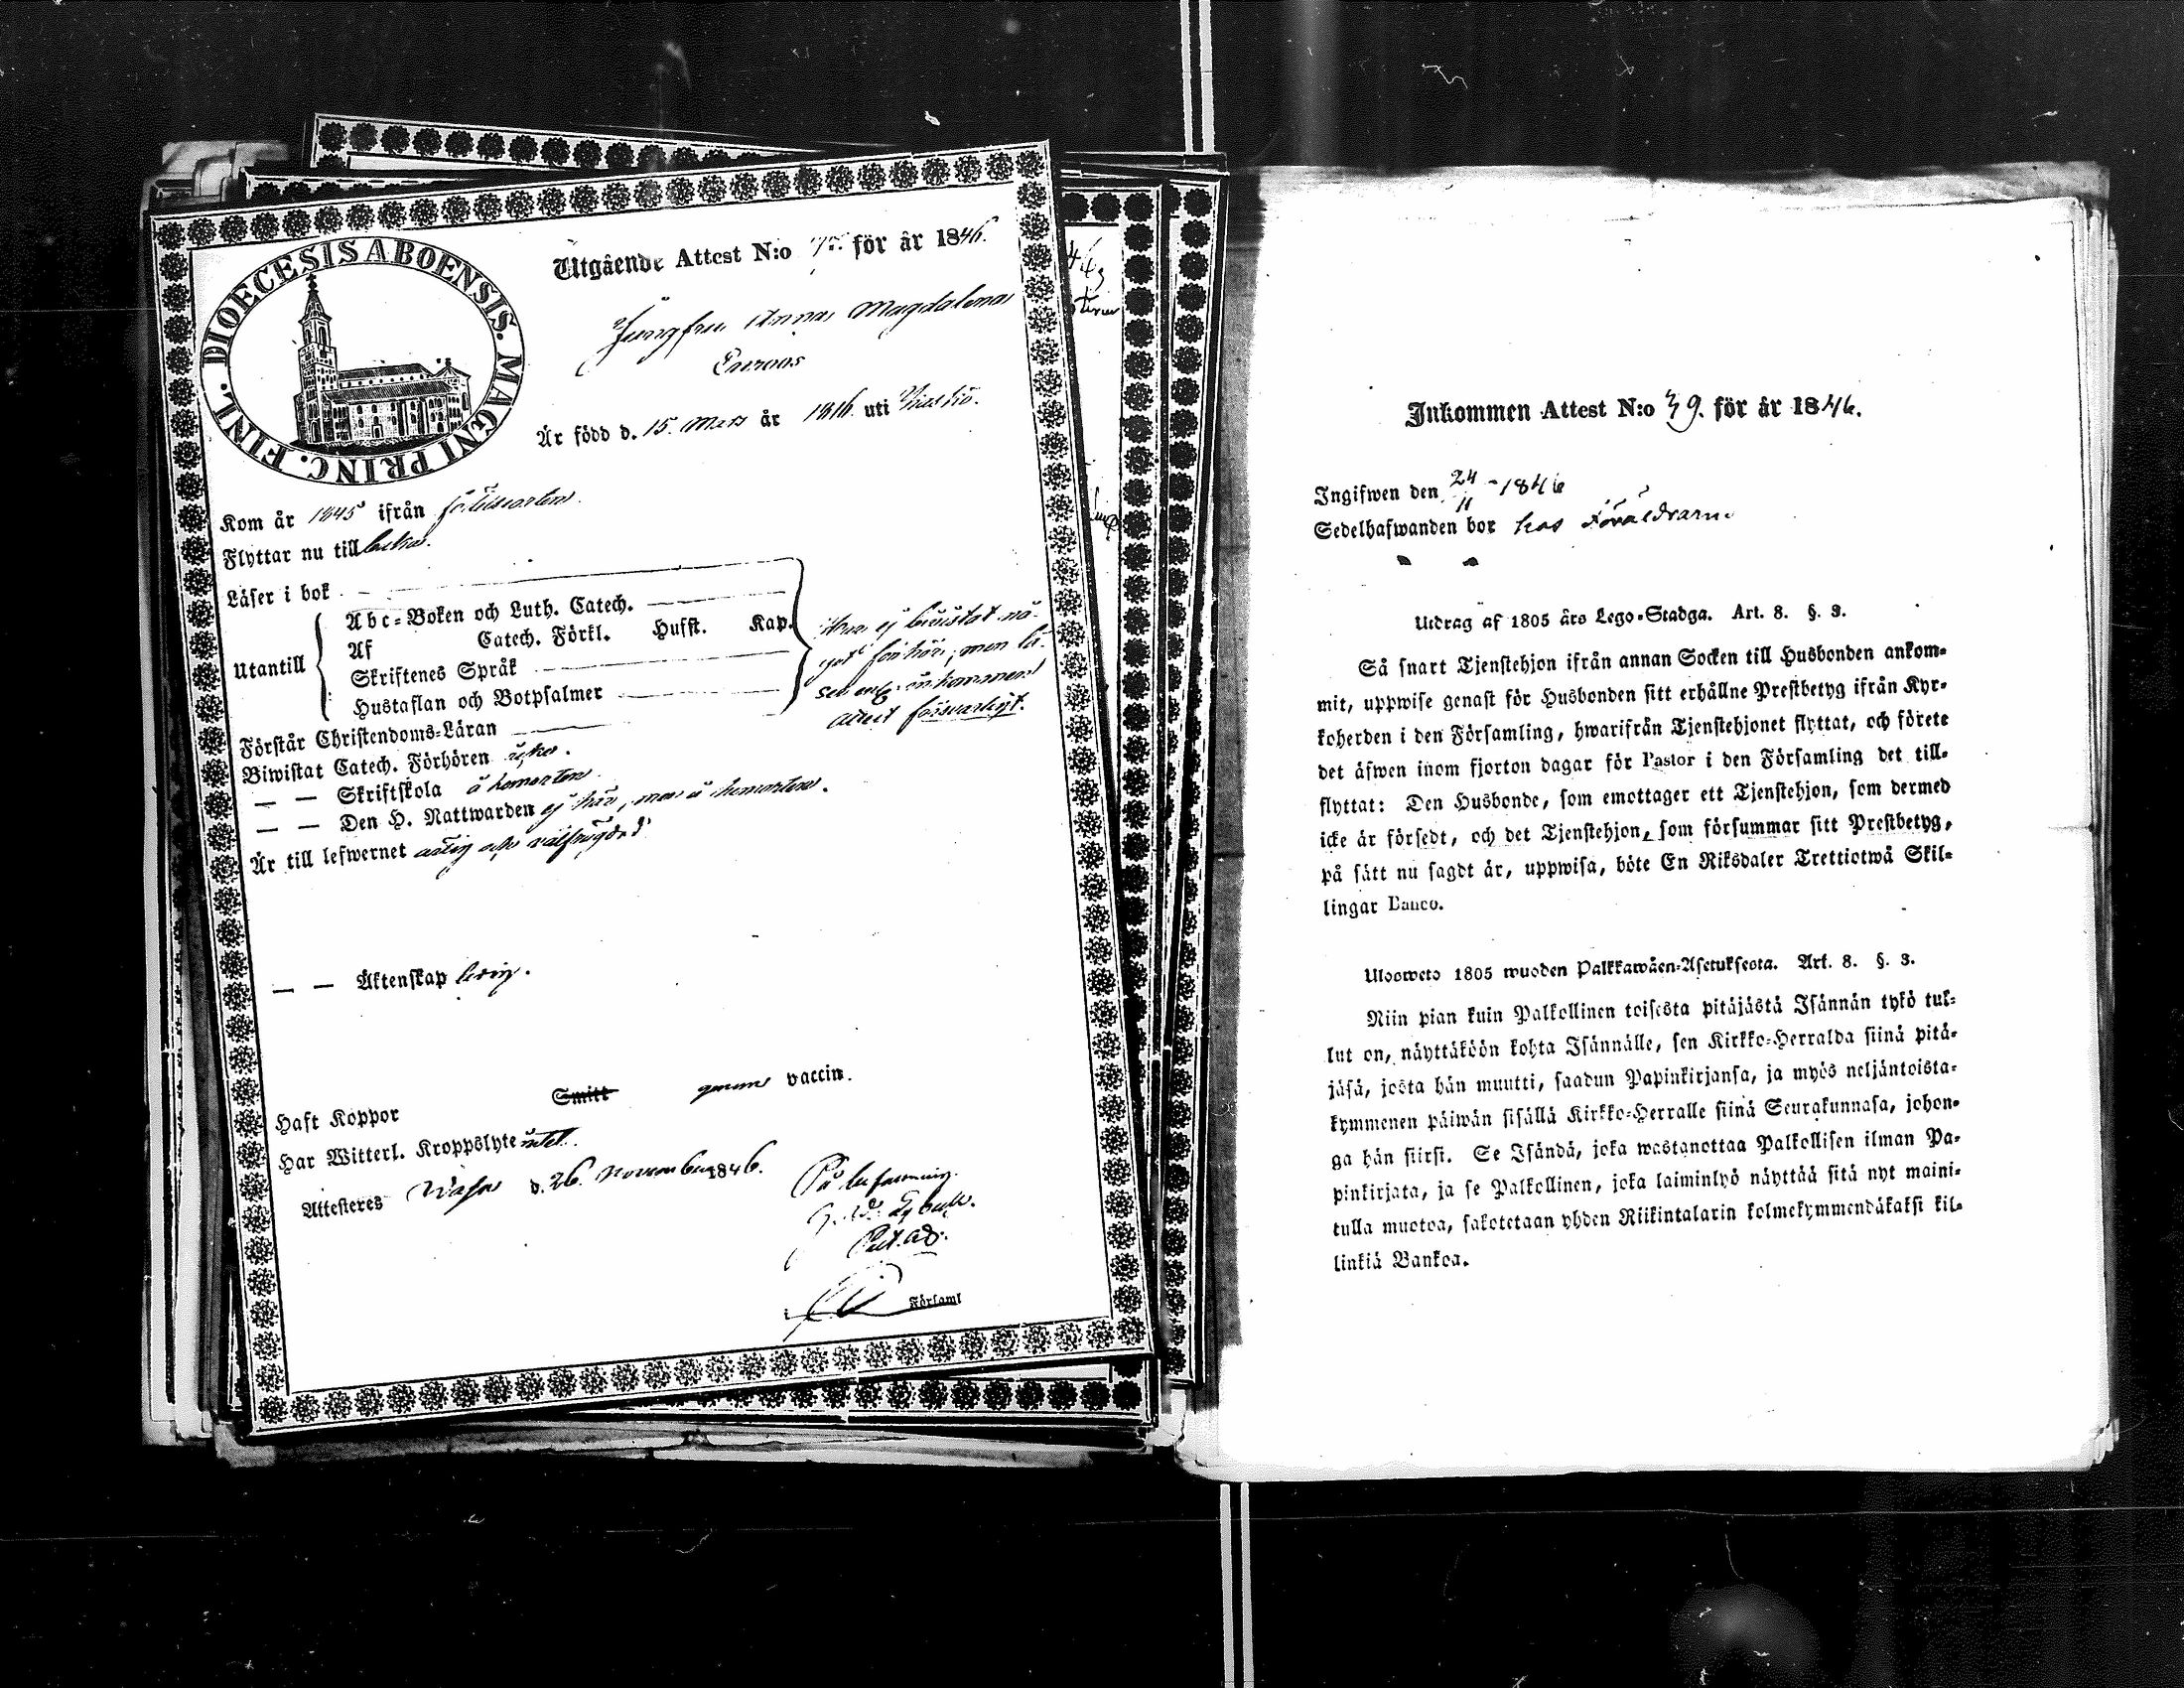 DIOECESIS ABOENSIS. MAGNI PRINC. FINL.
Utgående Attest N:o för år 1846.
Jungfru Anna Magdalena
Är född d. 15 Mars år 1816 uti
Kom år 1845 ifrån
Flyttar nu till
Läser i bok
Utantill
Abc-Boken och Luth. Catech.
Af Catech. Förkl. Husst. Kap.
Skriftenes Språk
Hustaflan och Botpsalmer
har ej bivistat nå-
got förhör, men lä-
ser enl. medkommen
attest försvarligt.
Förstår Christendoms-Läran
Biwistat Catech. Förhören
— — Skriftskola å hemorten
— — Den H. Nattwarden ej här, men å hemorten.
Är till lefwernet ärlig och välfrägdad
— — Äktenskap ledig.
Haft Koppor Smitt genom vaccin.
Har Witterl. Kroppslyte intet.
Attesteres Wasa d. 26 November 1846.
På befallning
Past. adj.
i Församl
Inkommen Attest N:o 39. för år 1846.
Ingifwen den 24/11 1846
Sedelhafwanden bor hos Föräldrarne
Utdrag af 1805 års Lego-Stadga. Art. 8. §. 3.
Så snart Tjenstehjon ifrån annan Socken till Husbonden ankom-
mit, uppwise genast för Husbonden sitt erhållne Prestbetyg ifrån Kyr-
koherden i den Församling, hwarifrån Tjenstehjonet flyttat, och förete
det äfwen inom fjorton dagar för Pastor i den Församling det till-
flyttat: Den Husbonde, som emottager ett Tjenstehjon, som dermed
icke är försedt, och det Tjenstehjon, som försummar sitt Prestbetyg,
på sätt nu sagdt är, uppwisa, böte En Riksdaler Trettiotwå Skil-
lingar Banco.
Ulosweto 1805 wuoden Palkkawäen-Asetuksesta. Art. 8. §. 3.
Niin pian kuin Palkollinen toisesta pitäjästä Isännän tykö tul-
lut on, näyttäköön kohta Isännälle, sen Kirkko-Herralda siinä pitä-
jäsä, josta hän muutti, saadun Papinkirjansa, ja myös neljäntoista-
kymmenen päiwän sisällä Kirkko-Herralle siinä Seurakunnasa, johon-
ga hän siirsi. Se Isändä, joka wastanottaa Palkollisen ilman Pa-
pinkirjata, ja se Palkollinen, joka laiminlyö näyttää sitä nyt maini-
tulla muotoa, sakotetaan yhden Riikintalarin kolmekymmendäkaksi kil-
linkiä Bankoa.